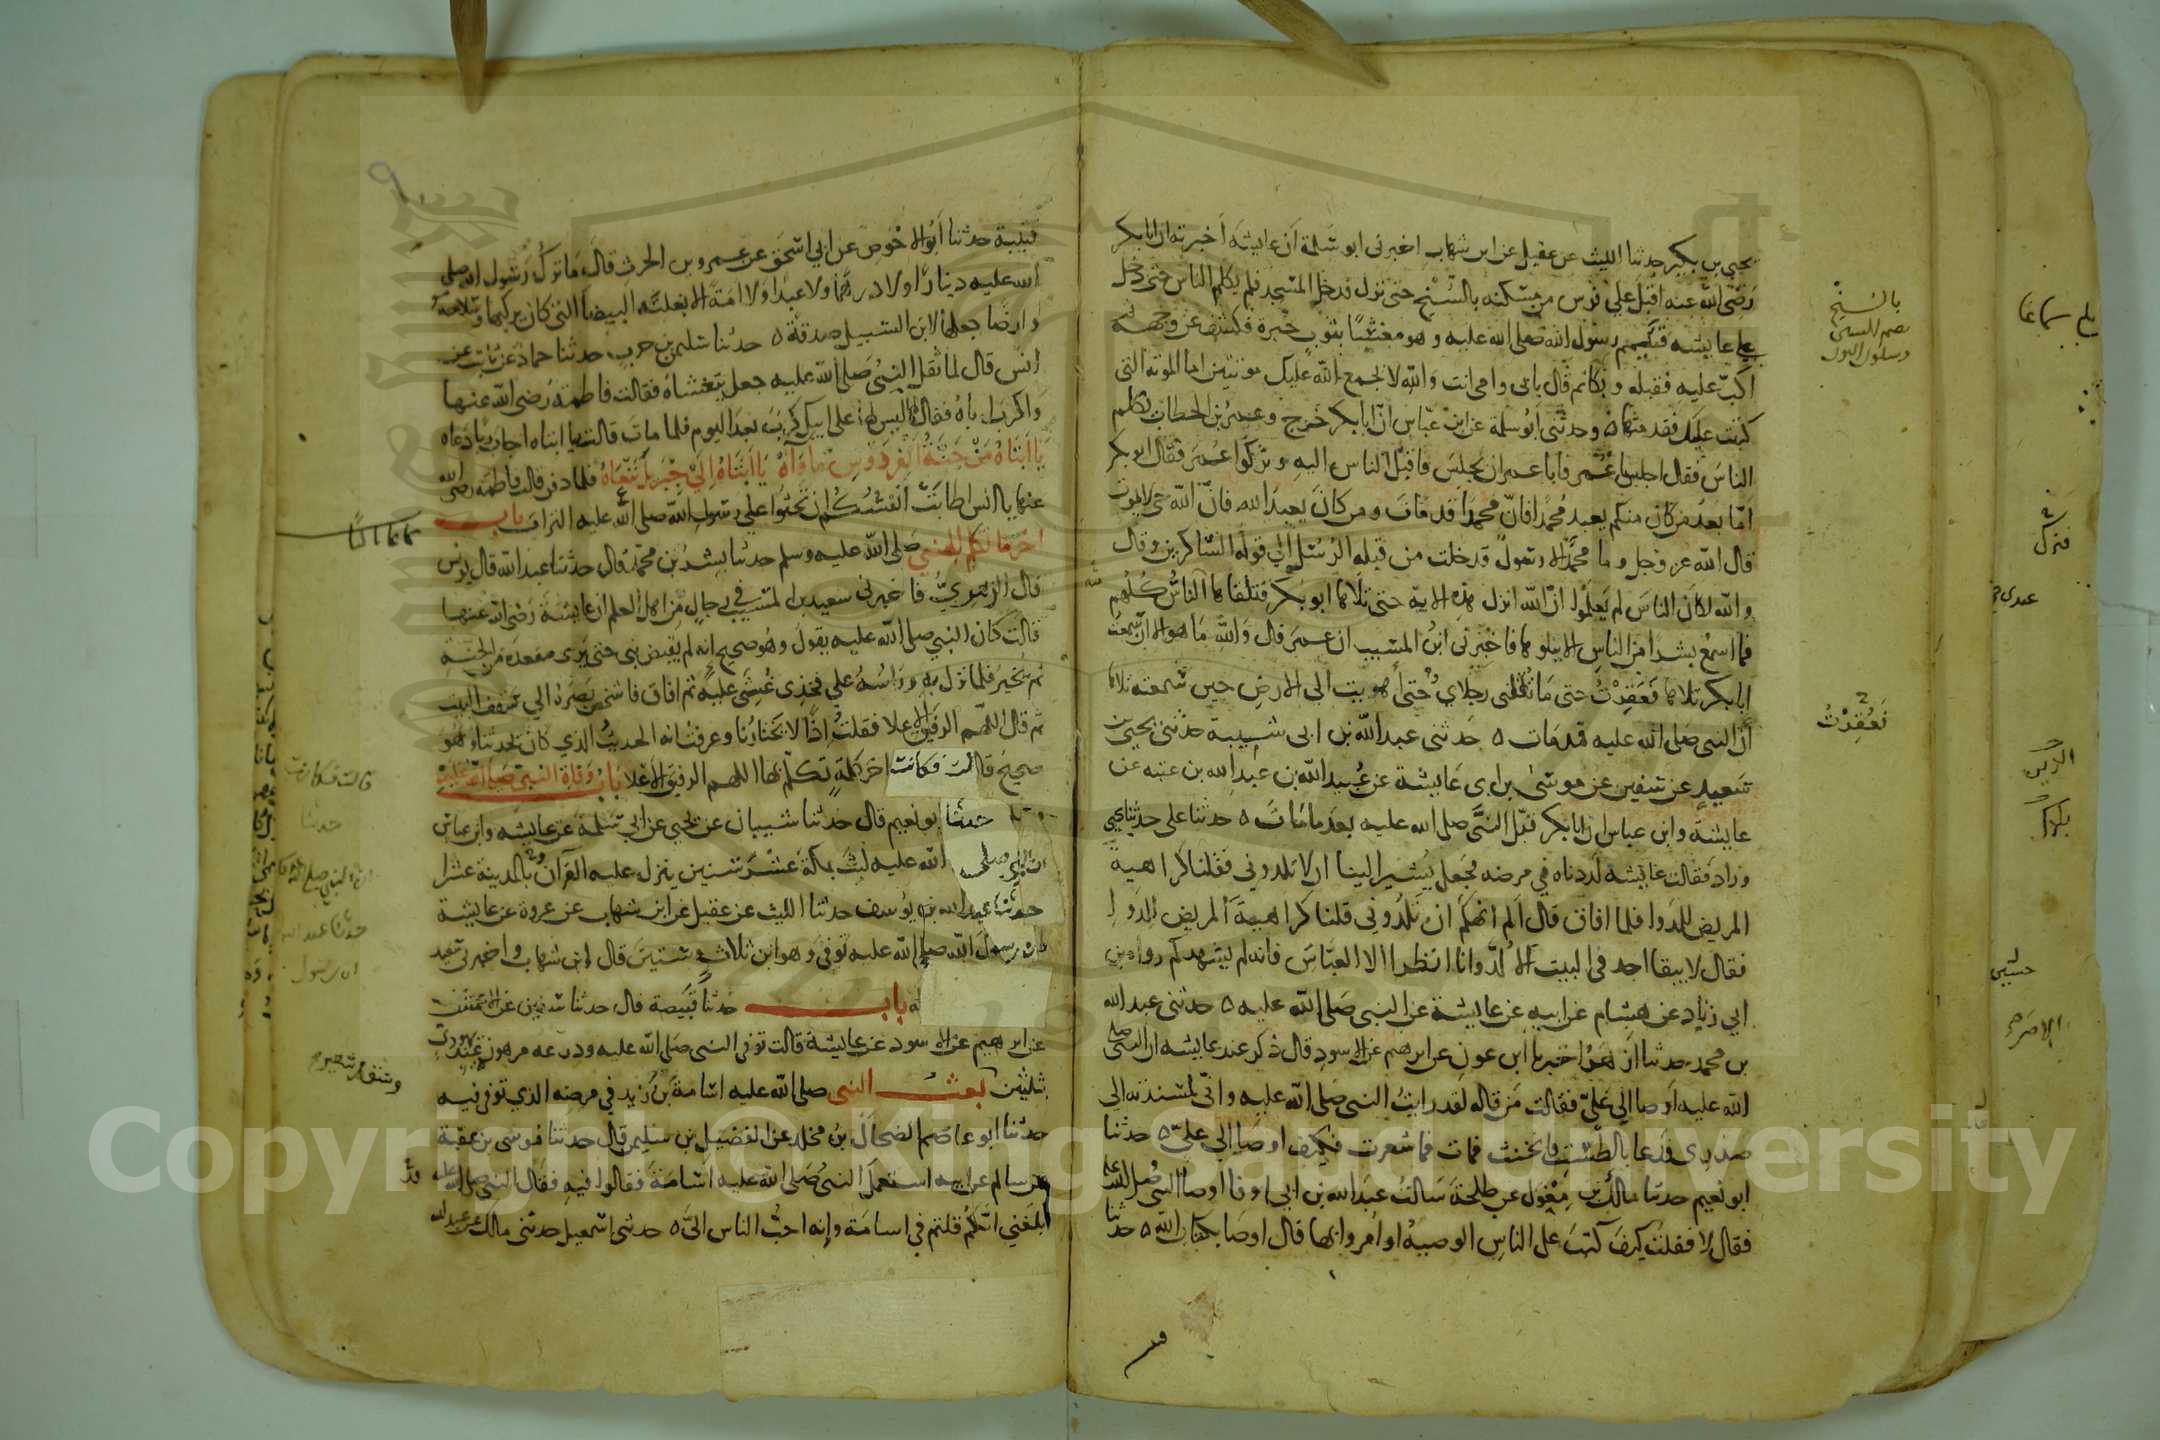 يحيي بن بكير حدثنا الليث عن عقيل عن ابن شهاب اخبرني ابو سلمة ان عايشه اخبرته ان ابا بكر
رضى الله عنه اقبل على فرس من مسكنه بالسنح حتى نزل فدخل المسجد فلم يكلم الناس حتى دخل
على عايشه فتيمم رسول الله صلى الله عليه وهو مغشى بثوب حبرة فكشف عن وجهه ثم
اكب عليه فقبله وبكا ثم قال بابي وامي انت والله لا يجمع الله عليك موتتين اما الموتة التي
كتبت عليك فقد متها ٥ وحدثني ابو سلمة عن ابن عباس ان ابا بكر خرج وعمر بن الخطاب يكلم
الناس فقال اجلس يا عمر فابا عمر ان يجلس فاقبل الناس اليه وتركوا عمر فقال ابو بكر
اما بعد من كان منكم يعبد محمدا فان محمدا قد مات ومن كان يعبد الله فان الله حي لا يموت
قال الله عز وجل وما محمد الا رسول قد خلت من قبله الرسل الي قوله الشاكرين وقال
والله لكان الناس لم يعلموا ان الله انزل هذه الاية حتى تلاها ابو بكر فتلقاها الناس كلهم
فما اسمع بشرا من الناس الا يتلوها فاخبرني ابن المسيب ان عمر قال والله ما هو الا ان سمعت
ابا بكر تلاها فعقرت حتى ما تقلني رجلاي وحتى اهويت الى الارض حين سمعته تلاها
ان النبي صلى الله عليه قد مات ٥ حدثني عبد الله بن ابي شيبة حدثني يحيى بن
سعيد عن سفين عن موسى بن ابي عايشة عن عبيد الله بن عبد الله بن عتبه عن
عايشة وابن عباس ان ابا بكر قبل النبي صلى الله عليه بعد ما مات ٥ حدثنا علي حدثنا يحيي
وزاد فقالت عايشه لددناه في مرضه فجعل يشير الينا ان لا تلدوني فقلنا كراهية
المريض للدوا فلما افاق قال الم انهكم ان تلدوني قلنا كراهية المريض للدوا
فقال لا يبقا احد في البيت الا لد وانا انظر الا العباس فانه لم يشهدكم رواه بن
ابي زياد عن هشام عن ابيه عن عايشة عن النبي صلى الله عليه ٥ حدثني عبد الله
بن محمد حدثنا ازهر اخبرنا ابن عون عن ابرهيم عن الاسود قال ذكر عند عايشه ان النبي صلى
الله عليه اوصا الي علي فقالت من قاله لقد رايت النبي صلى الله عليه واني لمسندته الي
صدري فدعا بالطست فانخنث فمات فما شعرت فكيف اوصا الي علي ٥ حدثنا
ابو نعيم حدثنا مالك بن مغول عن طلحة سالت عبد الله بن ابي اوفا اوصا النبي صلى الله عليه
فقال لا فقلت كيف كتب على الناس الوصية او امروا بها قال اوصا بكتاب الله ٥ حدثنا
بالسنح
فعقرت
قتيبة حدثنا ابو الاحوص عن ابي اسحق عن عمرو بن الحرث قال ما ترك رسول الله صلى
الله عليه دينارا ولا درهما ولا عبدا ولا امة الا بغلته البيضا التي كان يركبها وسلاحه
وارضا جعلها لابن السبيل صدقة ٥ حدثنا سليمن بن حرب حدثنا حماد عن ثابت عن
انس قال لما ثقل النبي صلى الله عليه جعل يتغشاه فقالت فاطمة رضى الله عنها
واكرب اباه فقال لها ليس على ابيك كرب بعد اليوم فلما مات قالت يا ابتاه اجاب ربا دعاه
يا ابتاه من جنة الفردوس ماواه يا ابتاه الي جبريل ننعاه فلما دفن قالت فاطمه رضى الله
عنها يا انس اطابت انفسكم ان تحثوا على رسول الله صلى الله عليه التراب باب
اخر ما تكلم النبي صلى الله عليه وسلم حدثنا بشر بن محمد قال حدثنا عبد الله قال يونس
قال الزهري فاخبرني سعيد بن المسيب في رجال من اهل العلم ان عايشة رضى الله عنها
قالت كان النبي صلى الله عليه يقول وهو صحيح انه لم يقبض نبي حتى يرى مقعده من الجنة
ثم يخير فلما نزل به وراسه على فخذي غشي عليه ثم افاق فاشخص بصره الي سقف البيت
ثم قال اللهم الرفيق الاعلا فقلت اذا لا يختارنا وعرفت انه الحديث الذي كان يحدثنا وهو
صحيح قالت فكانت اخر كلمة تكلم بها اللهم الرفيق الاعلا باب وفاة النبي صلى الله عليه
حدثنا ابو نعيم قال حدثنا شيبان عن يحيي عن ابي سلمة عن عايشه وابن عباس
ان النبي صلى الله عليه لبث بمكة عشر سنين ينزل عليه القرآن وبالمدينة عشرا
حدثنا عبد الله بن يوسف حدثنا الليث عن عقيل عن ابن شهاب عن عروة عن عايشة
ان رسول الله صلى الله عليه توفي وهو ابن ثلاث وستين قال ابن شهاب واخبرني سعيد
باب حدثنا قبيصة قال حدثنا سفين عن الاعمش
عن ابرهيم عن الاسود عن عايشة قالت توفي النبي صلى الله عليه ودرعه مرهونة عند يهودي
بثلثين بعث النبي صلى الله عليه اسامة بن زيد في مرضه الذي توفي فيه
حدثنا ابو عاصم الضحاك بن مخلد عن الفضيل بن سليمن قال حدثنا موسى بن عقبة
عن سالم عن ابيه استعمل النبي صلى الله عليه اسامة فقالوا فيه فقال النبي صلى الله عليه
بلغني انكم قلتم في اسامة وانه احب الناس الى ٥ حدثني اسمعيل حدثني مالك عن عبد الله
قالت فكانت
حدثنا
ان النبي صلى الله
حدثنا عبد الله
ان رسول
قد
Copyright © King Saud University